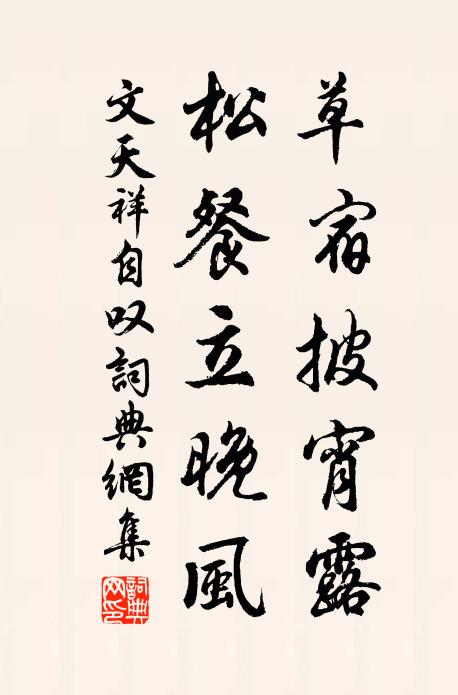 草宿披宵露
松餐立晚風
文天祥自叹詞典網集
詞典網印